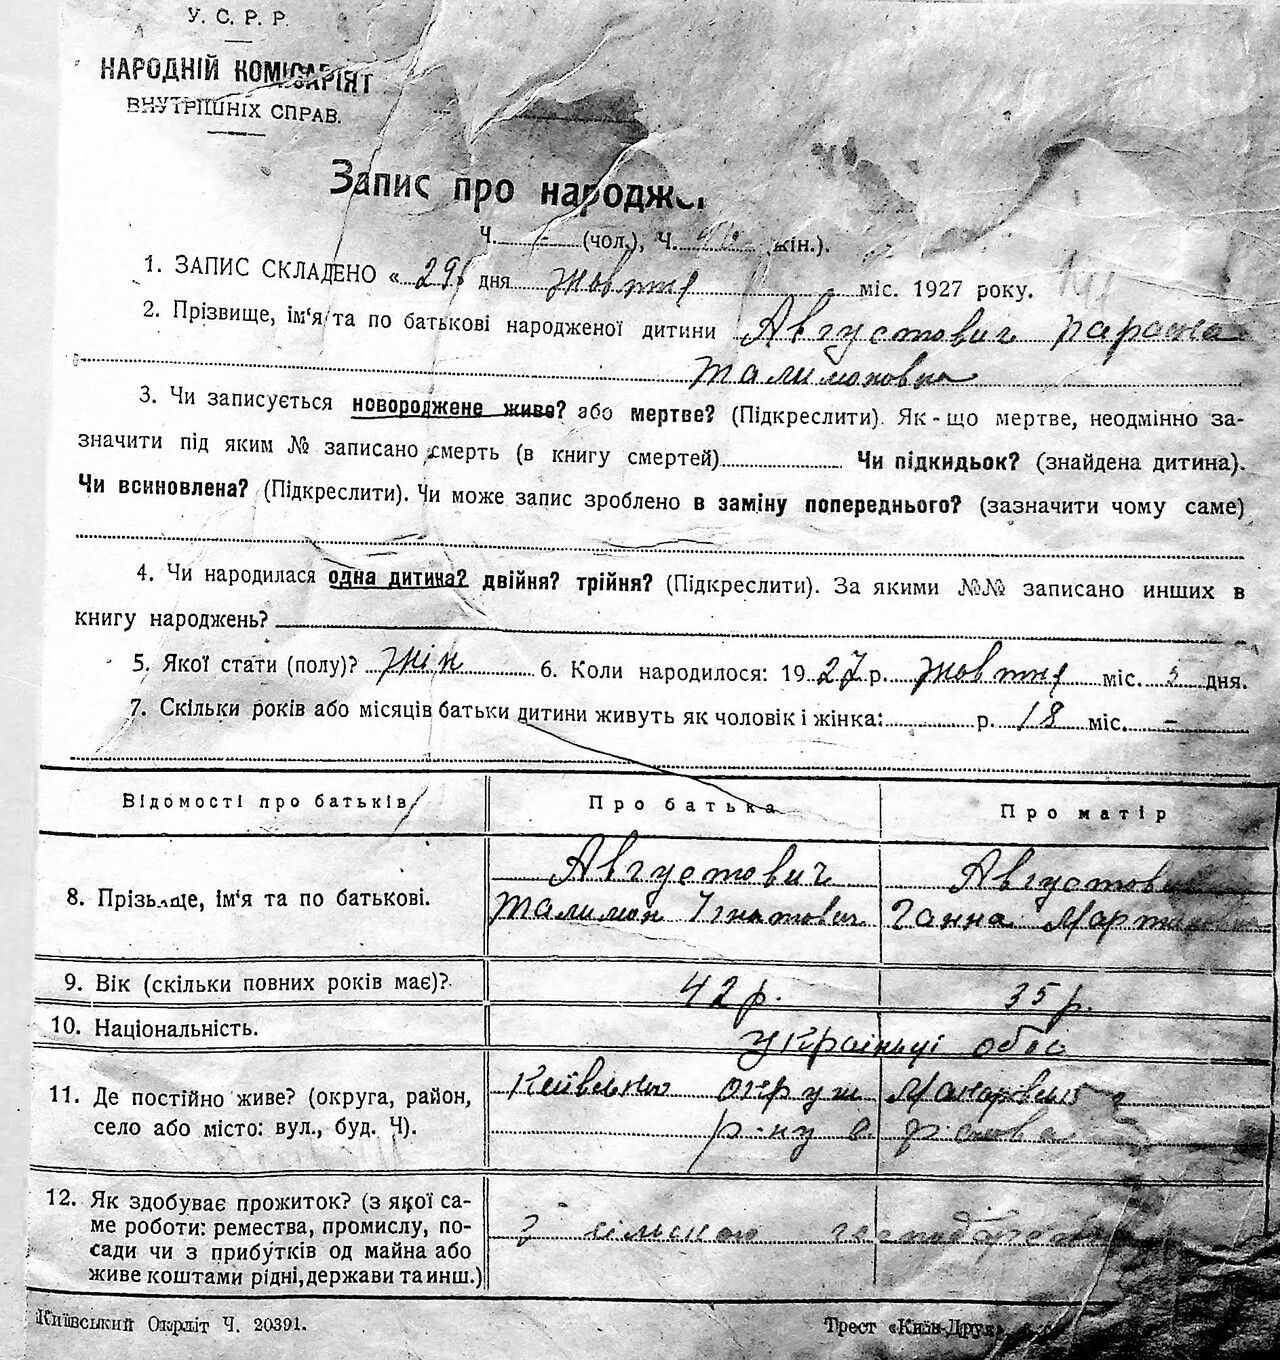 У. С. Р. Р.
НАРОДНІЙ КОМІСАРІЯТ
ВНУТРІШНІХ СПРАВ.
Запис про народже
Ч. - (чол.), Ч. жін.).
1. ЗАПИС СКЛАДЕНО « 29 дня жовтня міс. 1927 року.
2. Прізвище, ім'я та по батькові народженої дитини Августович Параска
Талимоновна
3. Чи записується новороджене живе? або мертве? (Підкреслити). Як-що мертве, неодмінно за-
значити під яким № записано смерть (в книгу смертей) Чи підкидьок? (знайдена дитина).
Чи всиновлена? (Підкреслити). Чи може запис зроблено в заміну попереднього? (зазначити чому саме)
4. Чи народилася одна дитина? двійня? трійня? (Підкреслити). За якими №№ записано инших в
книгу народжень?
5. Якої стати (полу)? жін 6. Коли народилося: 1927 р. жовтня міс. 5 дня.
7. Скільки років або місяців батьки дитини живуть як чоловік і жінка: р. 18 міс. -
Відомості про батьків Про батька Про матір
Августович Августович
8. Прізвище, ім'я та по батькові. Талимон Гнатович Ганна Мартиновна
9. Вік (скільки повних років має)? 42 р. 35 р.
10. Національність. Українці обоє
11. Де постійно живе? (округа, район, Київська округ Макарівського
село або місто: вул., буд. Ч). р-ну с
12. Як здобуває прожиток? (з якої са-
ме роботи: ремества, промислу, по- З сільского господарства
сади чи з прибутків од майна або
живе коштами рідні, держави та инш.)
Київський Окрліт Ч. 20391. Трест «Київ-Друк»